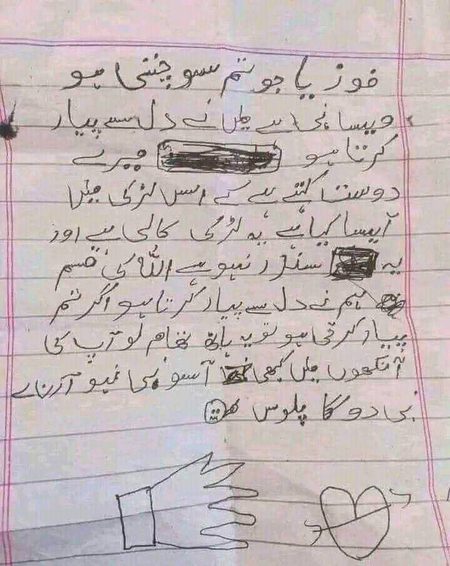 فوزیا جو تم سوچتی ہو
ویسا نہی ہے میں نے دل سے پیار
کرتا ہو میرے
دوست کہتے ہے کے اس لڑکی میں
آیسا کیا ہے یہ لڑکی کالی ہے اور
یہ سندر نہی ہے اللہ کی قسم
ہم نے دل سے پیار کرتا ہو اگر تم
پیار کرتی ہو تو یہ ہاتھ تھام لو آپ کی
آنکھوں میں کبھی آسو بھی نہیو آکرناے
بی دو کا پلوس